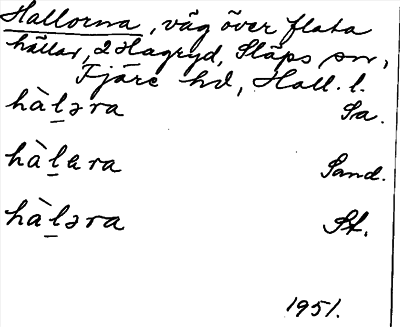 Hallorna, väg över flata
hällar, 2 Hagryd, Släps sn,
Fjäre hd, Hall. l.
hàl̠əra Sa.
hàl̠ɐra Sand.
hàl̠əra St.
1951.